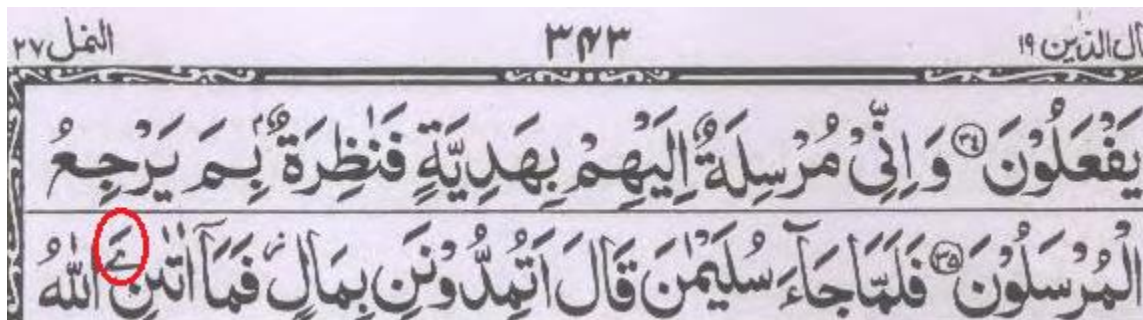 ال الذين ١٩ ٣٤٣ النمل ٢٧
يَفْعَلُوْنَ ﴿٣٤﴾ وَ اِنِّىْ مُرْسِلَةٌ اِلَيْهِمْ بِهَدِيَّةٍ فَنٰظِرَةٌۢ بِمَ يَرْجِعُ
الْمُرْسَلُوْنَ ﴿٣٥﴾ فَلَمَّا جَآءَ سُلَيْمٰنَ قَالَ اَتُمِدُّوْنَنِ بِمَالٍ ز فَمَآ اٰتٰىنِۦَ اللّٰهُ